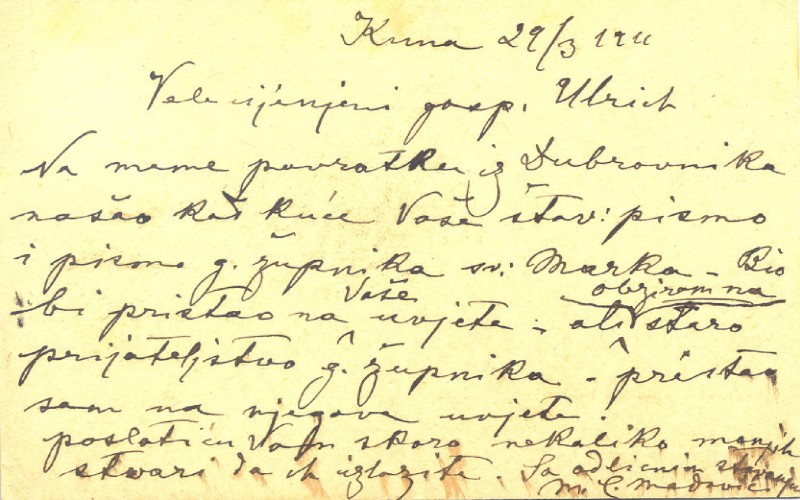 Kuna 29/3 1911
Velecijenjeni gosp. Ulrich
Na mome povratku iz Dubrovnika
našao kod kuće Vaše štov: pismo
i pismo g. župnika sv: Marka – Bio
bi pristao na Vaše uvjete – ali obzirom na staro
prijateljstvo g. župnika – pristao
sam na njegove uvjete.
poslati ću Vam skoro nekoliko manjih
stvari da ih izložite. Sa odličnim štovanjem
M. C. Medović